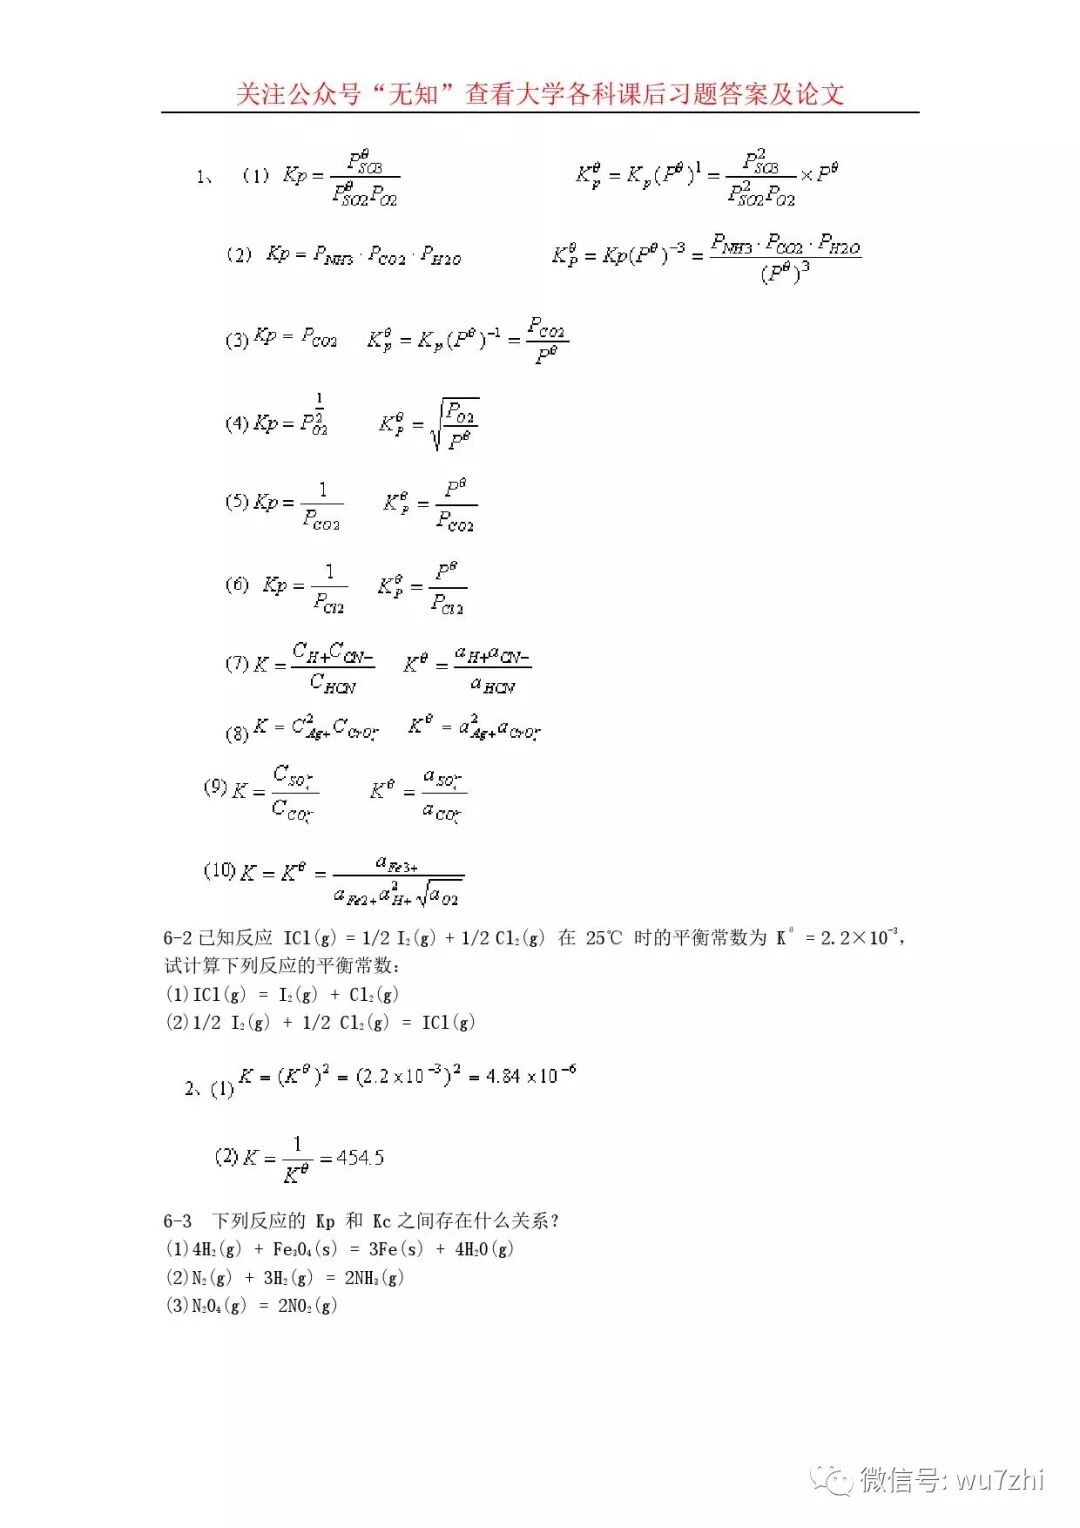 关注公众号“无知”查看大学各科课后习题答案及论文
1、 (1) Kp = P^θ_SO3 / (P^θ_SO2 P_O2) K^θ_p = K_p(P^θ)^1 = P^2_SO3 / (P^2_SO2 P_O2) × P^θ
(2) Kp = P_NH3 · P_CO2 · P_H2O K^θ_P = Kp(P^θ)^-3 = P_NH3 · P_CO2 · P_H2O / (P^θ)^3
(3) Kp = P_CO2 K^θ_p = K_p(P^θ)^-1 = P_CO2 / P^θ
(4) Kp = P_O2^(1/2) K^θ_P = √(P_O2 / P^θ)
(5) Kp = 1 / P_CO2 K^θ_P = P^θ / P_CO2
(6) Kp = 1 / P_Cl2 K^θ_P = P^θ / P_Cl2
(7) K = C_H+ C_CN- / C_HCN K^θ = a_H+ a_CN- / a_HCN
(8) K = C^2_Ag+ C_CrO4^2- K^θ = a^2_Ag+ a_CrO4^2-
(9) K = C_SO4^2- / C_CO3^2- K^θ = a_SO4^2- / a_CO3^2-
(10) K = K^θ = a_Fe3+ / (a_Fe2+ a^2_H+ √a_O2)
6-2 已知反应 ICl(g) = 1/2 I₂(g) + 1/2 Cl₂(g) 在 25℃ 时的平衡常数为 K^θ = 2.2×10⁻³，
试计算下列反应的平衡常数：
(1)ICl(g) = I₂(g) + Cl₂(g)
(2)1/2 I₂(g) + 1/2 Cl₂(g) = ICl(g)
2、(1) K = (K^θ)^2 = (2.2×10^-3)^2 = 4.84×10^-6
(2) K = 1 / K^θ = 454.5
6-3 下列反应的 Kp 和 Kc 之间存在什么关系？
(1)4H₂(g) + Fe₃O₄(s) = 3Fe(s) + 4H₂O(g)
(2)N₂(g) + 3H₂(g) = 2NH₃(g)
(3)N₂O₄(g) = 2NO₂(g)
微信号: wu7zhi